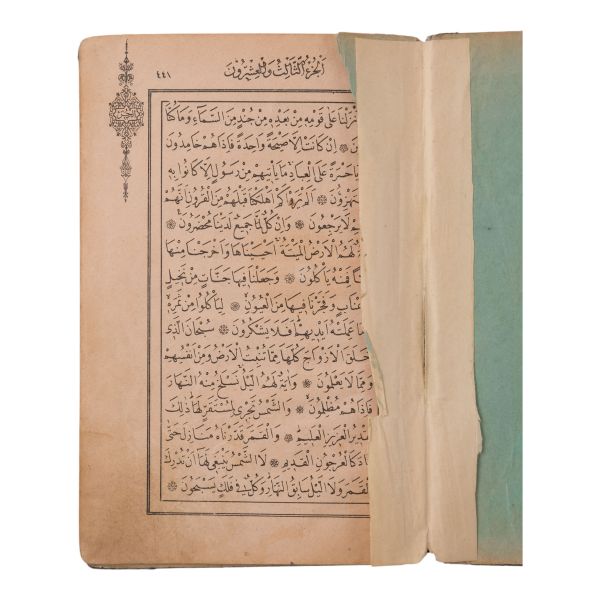 الجزء الثالث والعشرون
٤٤١
عَلَى قَوْمِهِ مِنْ بَعْدِهِ مِنْ جُنْدٍ مِنَ السَّمَاءِ وَمَا كُنَّا
اِنْ كَانَتْ اِلَّا صَيْحَةً وَاحِدَةً فَاِذَا هُمْ خَامِدُونَ
يَا حَسْرَةً عَلَى الْعِبَادِ مَا يَاْتِيهِمْ مِنْ رَسُولٍ اِلَّا كَانُوا بِهِ
اَلَمْ يَرَوْا كَمْ اَهْلَكْنَا قَبْلَهُمْ مِنَ الْقُرُونِ اَنَّهُمْ
لَا يَرْجِعُونَ وَاِنْ كُلٌّ لَمَّا جَمِيعٌ لَدَيْنَا مُحْضَرُونَ
لَهُمُ الْاَرْضُ الْمَيْتَةُ اَحْيَيْنَاهَا وَاَخْرَجْنَا مِنْهَا
فَمِنْهُ يَاْكُلُونَ وَجَعَلْنَا فِيهَا جَنَّاتٍ مِنْ نَخِيلٍ
وَفَجَّرْنَا فِيهَا مِنَ الْعُيُونِ لِيَاْكُلُوا مِنْ ثَمَرِهِ
عَمِلَتْهُ اَيْدِيهِمْ اَفَلَا يَشْكُرُونَ سُبْحَانَ الَّذِي
خَلَقَ الْاَزْوَاجَ كُلَّهَا مِمَّا تُنْبِتُ الْاَرْضُ وَمِنْ اَنْفُسِهِمْ
وَمِمَّا لَا يَعْلَمُونَ وَاٰيَةٌ لَهُمُ الَّيْلُ نَسْلَخُ مِنْهُ النَّهَارَ
فَاِذَا هُمْ مُظْلِمُونَ وَالشَّمْسُ تَجْرِي لِمُسْتَقَرٍّ لَهَا ذٰلِكَ
الْعَزِيزِ الْعَلِيمِ وَالْقَمَرَ قَدَّرْنَاهُ مَنَازِلَ حَتَّى
كَالْعُرْجُونِ الْقَدِيمِ لَا الشَّمْسُ يَنْبَغِي لَهَا اَنْ تُدْرِكَ
الْقَمَرَ وَلَا الَّيْلُ سَابِقُ النَّهَارِ وَكُلٌّ فِي فَلَكٍ يَسْبَحُونَ